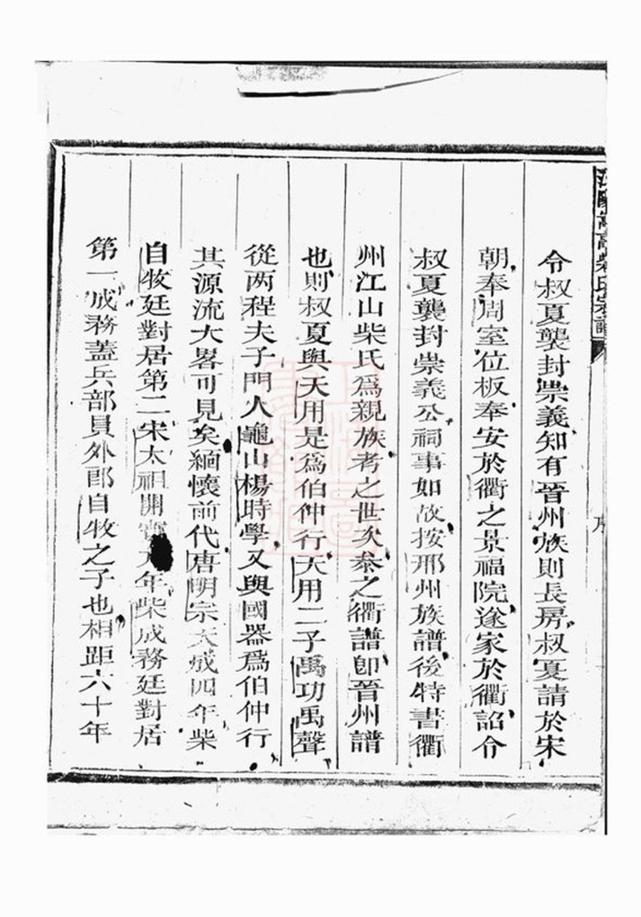 令叔夏襲封崇義知有晉州族則長房叔夏請於宋
朝奉周室位板奉安於衢之景福院遂家於衢詔令
叔夏襲封崇義公祠事如故按邢州族譜後特書衢
州江山柴氏爲親族考之世次叅之衢譜卽晉州譜
也則叔夏與天用是爲伯仲行天用二子禹功禹聲
從两程夫子門人龜山楊時學又與國器爲伯仲行
其源流大畧可見矣緬懷前代唐明宗天成四年柴
自牧廷對居第二宋太祖開寳 年柴成務廷對居
第一成務蓋兵部員外郎自牧之子也相距六十年
嵩高柴氏宗譜